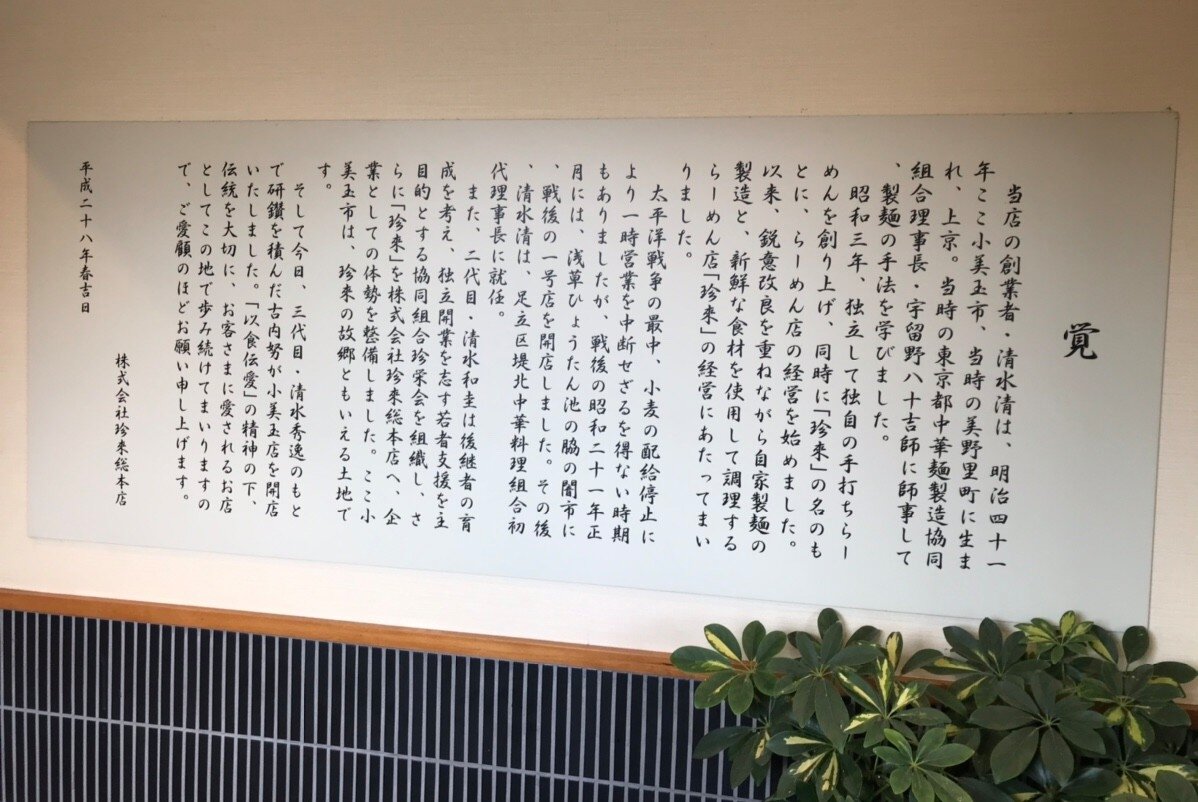 覚
当店の創業者・清水清は、明治四十一
年ここ小美玉市、当時の美野里町に生ま
れ、上京。当時の東京都中華麺製造協同
組合理事長・宇留野八十吉師に師事して
、製麺の手法を学びました。
昭和三年、独立して独自の手打ちらー
めんを創り上げ、同時に「珍来」の名のも
とに、らーめん店の経営を始めました。
以来、鋭意改良を重ねながら自家製麺の
製造と、新鮮な食材を使用して調理する
らーめん店「珍来」の経営にあたってまい
りました。
太平洋戦争の最中、小麦の配給停止に
より一時営業を中断せざるを得ない時期
もありましたが、戦後の昭和二十一年正
月には、浅草ひょうたん池の脇の闇市に
、戦後の一号店を開店しました。その後
、清水清は、足立区堤北中華料理組合初
代理事長に就任。
また、二代目・清水和圭は後継者の育
成を考え、独立開業を志す若者支援を主
目的とする協同組合珍栄会を組織し、さ
らに「珍来」を株式会社珍来総本店へ、企
業としての体勢を整備しました。ここ小
美玉市は、珍来の故郷ともいえる土地で
す。
そして今日、三代目 清水秀逸のもと
で研鑽を積んだ古内努が小美玉店を開店
いたしました。「以食伝愛」の精神の下、
伝統を大切に、お客さまに愛されるお店
としてこの地で歩み続けてまいりますの
で、ご愛顧のほどお願い申し上げます。
株式会社珍来総本店
平成二十八年春吉日